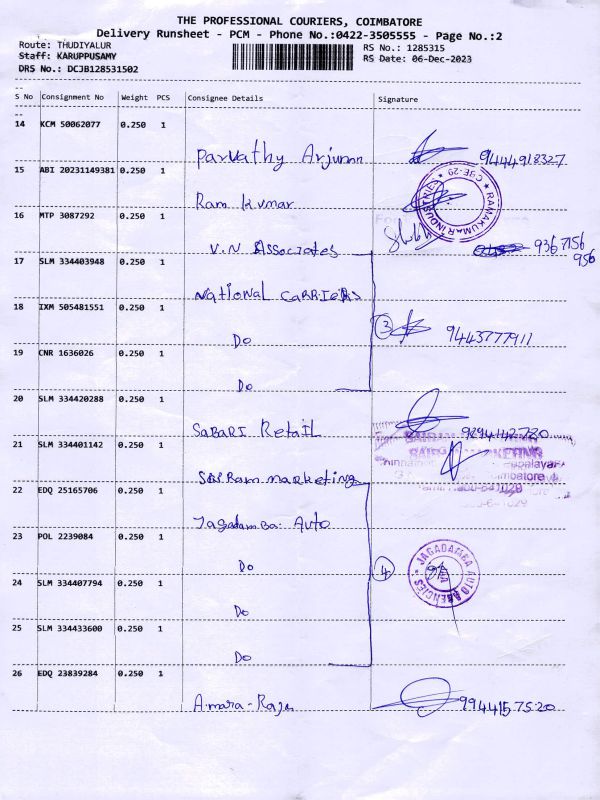 THE PROFESSIONAL COURIERS, COIMBATORE
Delivery Runsheet - PCM - Phone No.:0422-3505555 - Page No.:2
Route: THUDIYALUR
RS No.: 1285315
Staff: KARUPPUSAMY
RS Date: 06-Dec-2023
DRS No.: DCJB128531502
S No Consignment No Weight PCS Consignee Details Signature
14 KCM 50062077 0.250 1
Parvathy Arjunan 9444918327
15 ABI 20231149381 0.250 1
Ram kumar
RAMAKUMAR INDUSTRIES * CBE-20 *
16 MTP 3087292 0.250 1
V.N Associates 9367156
956
17 SLM 334403948 0.250 1
National CARRIERS
18 IXM 505481551 0.250 1
Do 3 9443777911
19 CNR 1636026 0.250 1
Do
20 SLM 334420288 0.250 1
SABARI Retail 9894142780
21 SLM 334401142 0.250 1
SAIRAM MARKETING
Coimbatore
Sairam marketing
22 EDQ 25165706 0.250 1
Jagadamba Auto
23 POL 2239084 0.250 1
Do 4
JAGADAMBA AUTO AGENCIES
24 SLM 334407794 0.250 1
Do
25 SLM 334433600 0.250 1
Do
26 EDQ 23839284 0.250 1
Amara-Raja 9944157520